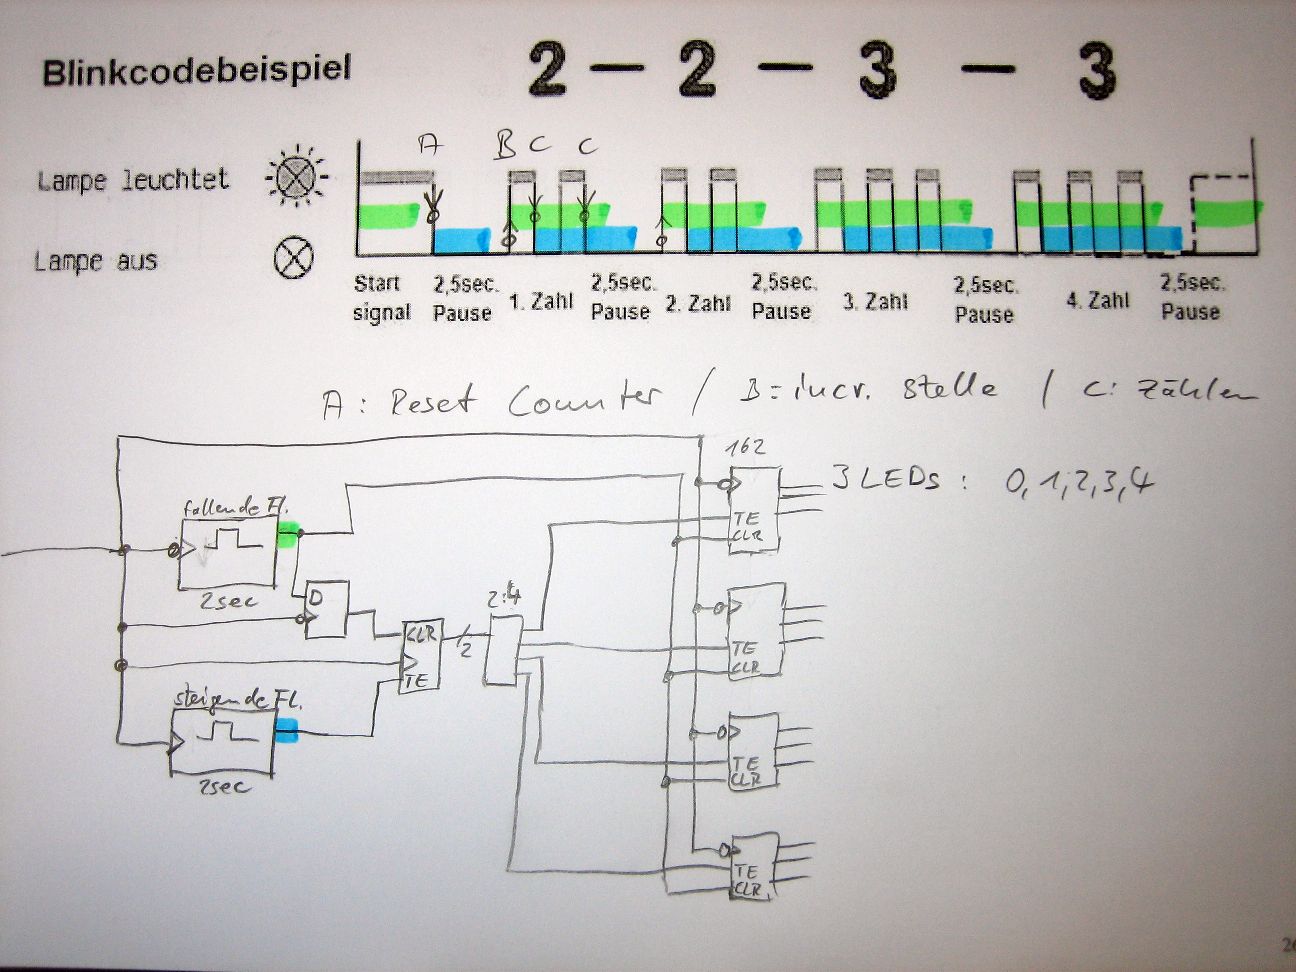 Blinkcodebeispiel 2 — 2 — 3 — 3
A B C C
Lampe leuchtet
Lampe aus
Start signal 2,5sec. Pause 1. Zahl 2,5sec. Pause 2. Zahl 2,5sec. Pause 3. Zahl 2,5sec. Pause 4. Zahl 2,5sec. Pause
A: Reset Counter / B= incr. Stelle / C: Zählen
162
3 LEDs : 0,1,2,3,4
fallende Fl.
TE
CLR
2sec
D
2:4
CLR
2
TE
TE
CLR
steigende Fl.
2sec
TE
CLR
TE
CLR